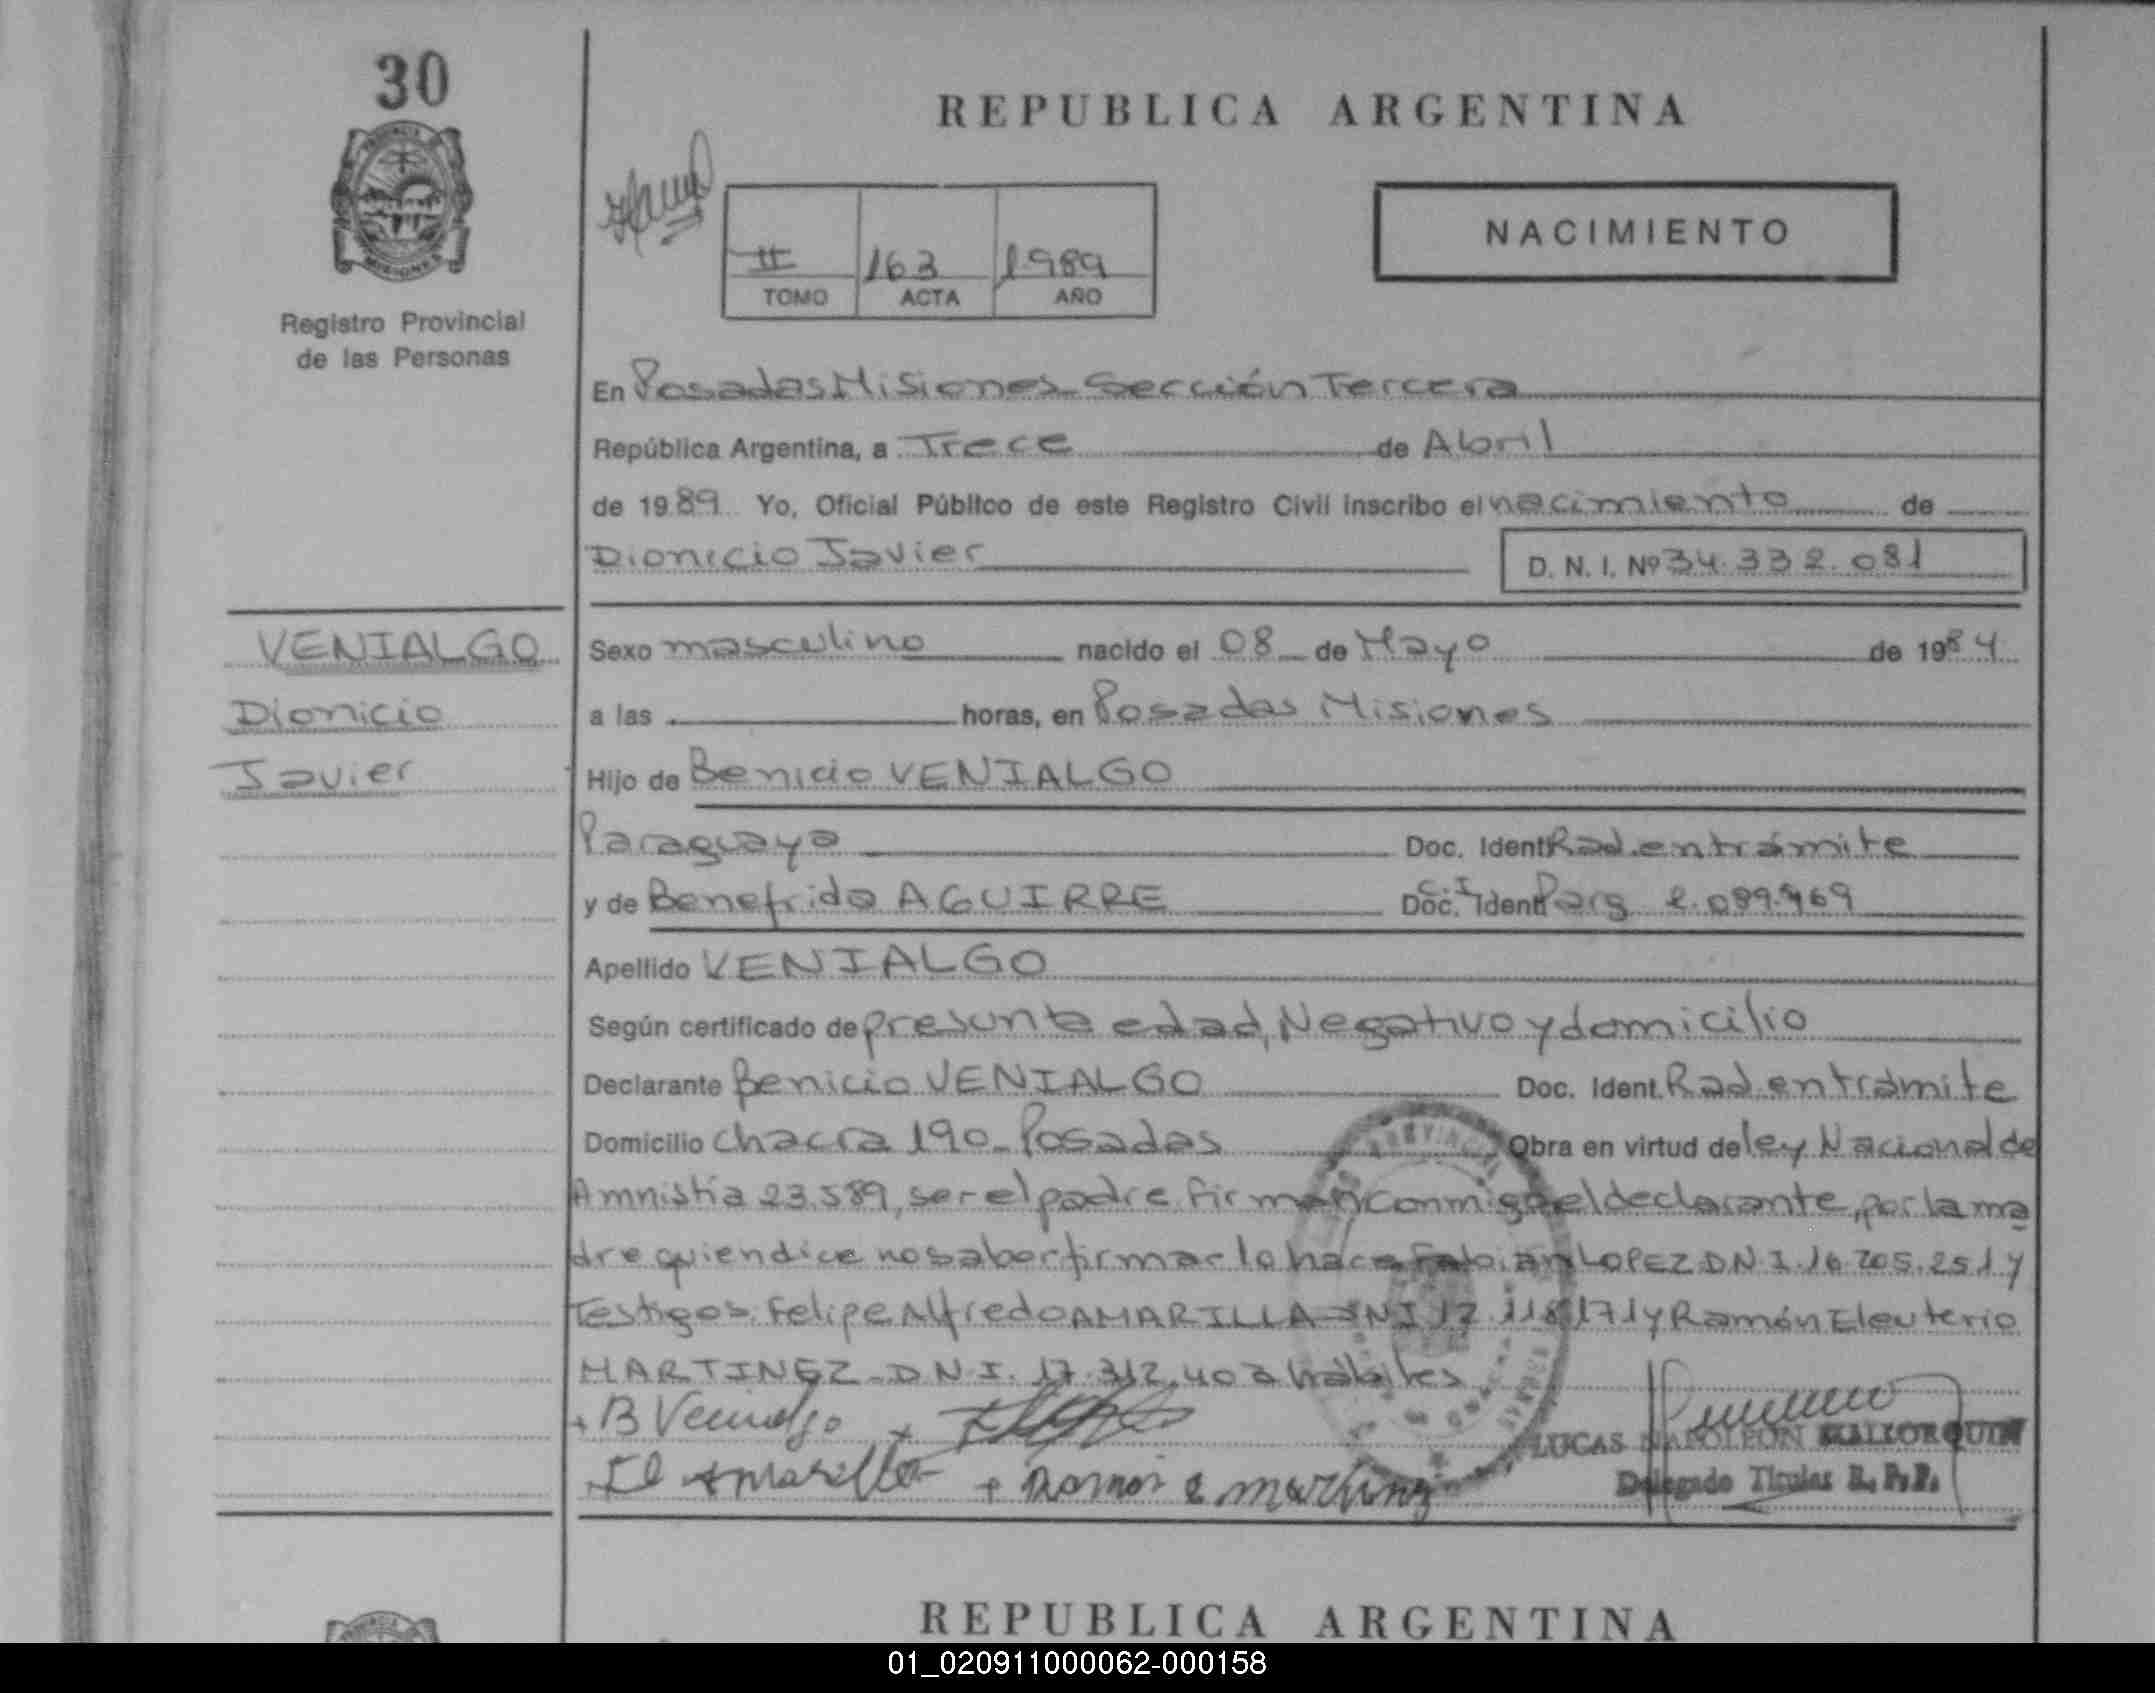 30
REPUBLICA ARGENTINA
NACIMIENTO
II 163 1989
TOMO ACTA AÑO
Registro Provincial
de las Personas
En Posadas Misiones Sección Tercera
República Argentina, a Trece de Abril
de 1989 Yo, Oficial Público de este Registro Civil inscribo el nacimiento de
Dionicio Javier D. N. I. Nº 34.332.081
VENIALGO
Dionicio
Javier
Sexo masculino nacido el 08 de Mayo de 1984
a las horas, en Posadas Misiones
Hijo de Benicio VENIALGO
Paraguayo Doc. Ident Rad. en trámite
y de Benefrida AGUIRRE C.I Doc. Ident Parg 2.089.969
Apellido VENIALGO
Según certificado de presunta edad, Negativo y domicilio
Declarante Benicio VENIALGO Doc. Ident. Rad. en trámite
Domicilio Chacra 190 - Posadas Obra en virtud de ley Nacional de
Amnistía 23.589, ser el padre firman conmigo el declarante, por la ma
dre quien dice no saber firmar lo hace Fabián LOPEZ D N I. 16.205.251 y
Testigos. Felipe Alfredo AMARILLA DNI 17.118.171 y Ramón Eleuterio
MARTINEZ - D N I. 17.312.402 hábiles
+ B Venialgo
Amarilla + Ramon e martinez
LUCAS NAPOLEON MALLORQUIN
Delegado Titular R. P. P.
REPUBLICA ARGENTINA
01_020911000062-000158